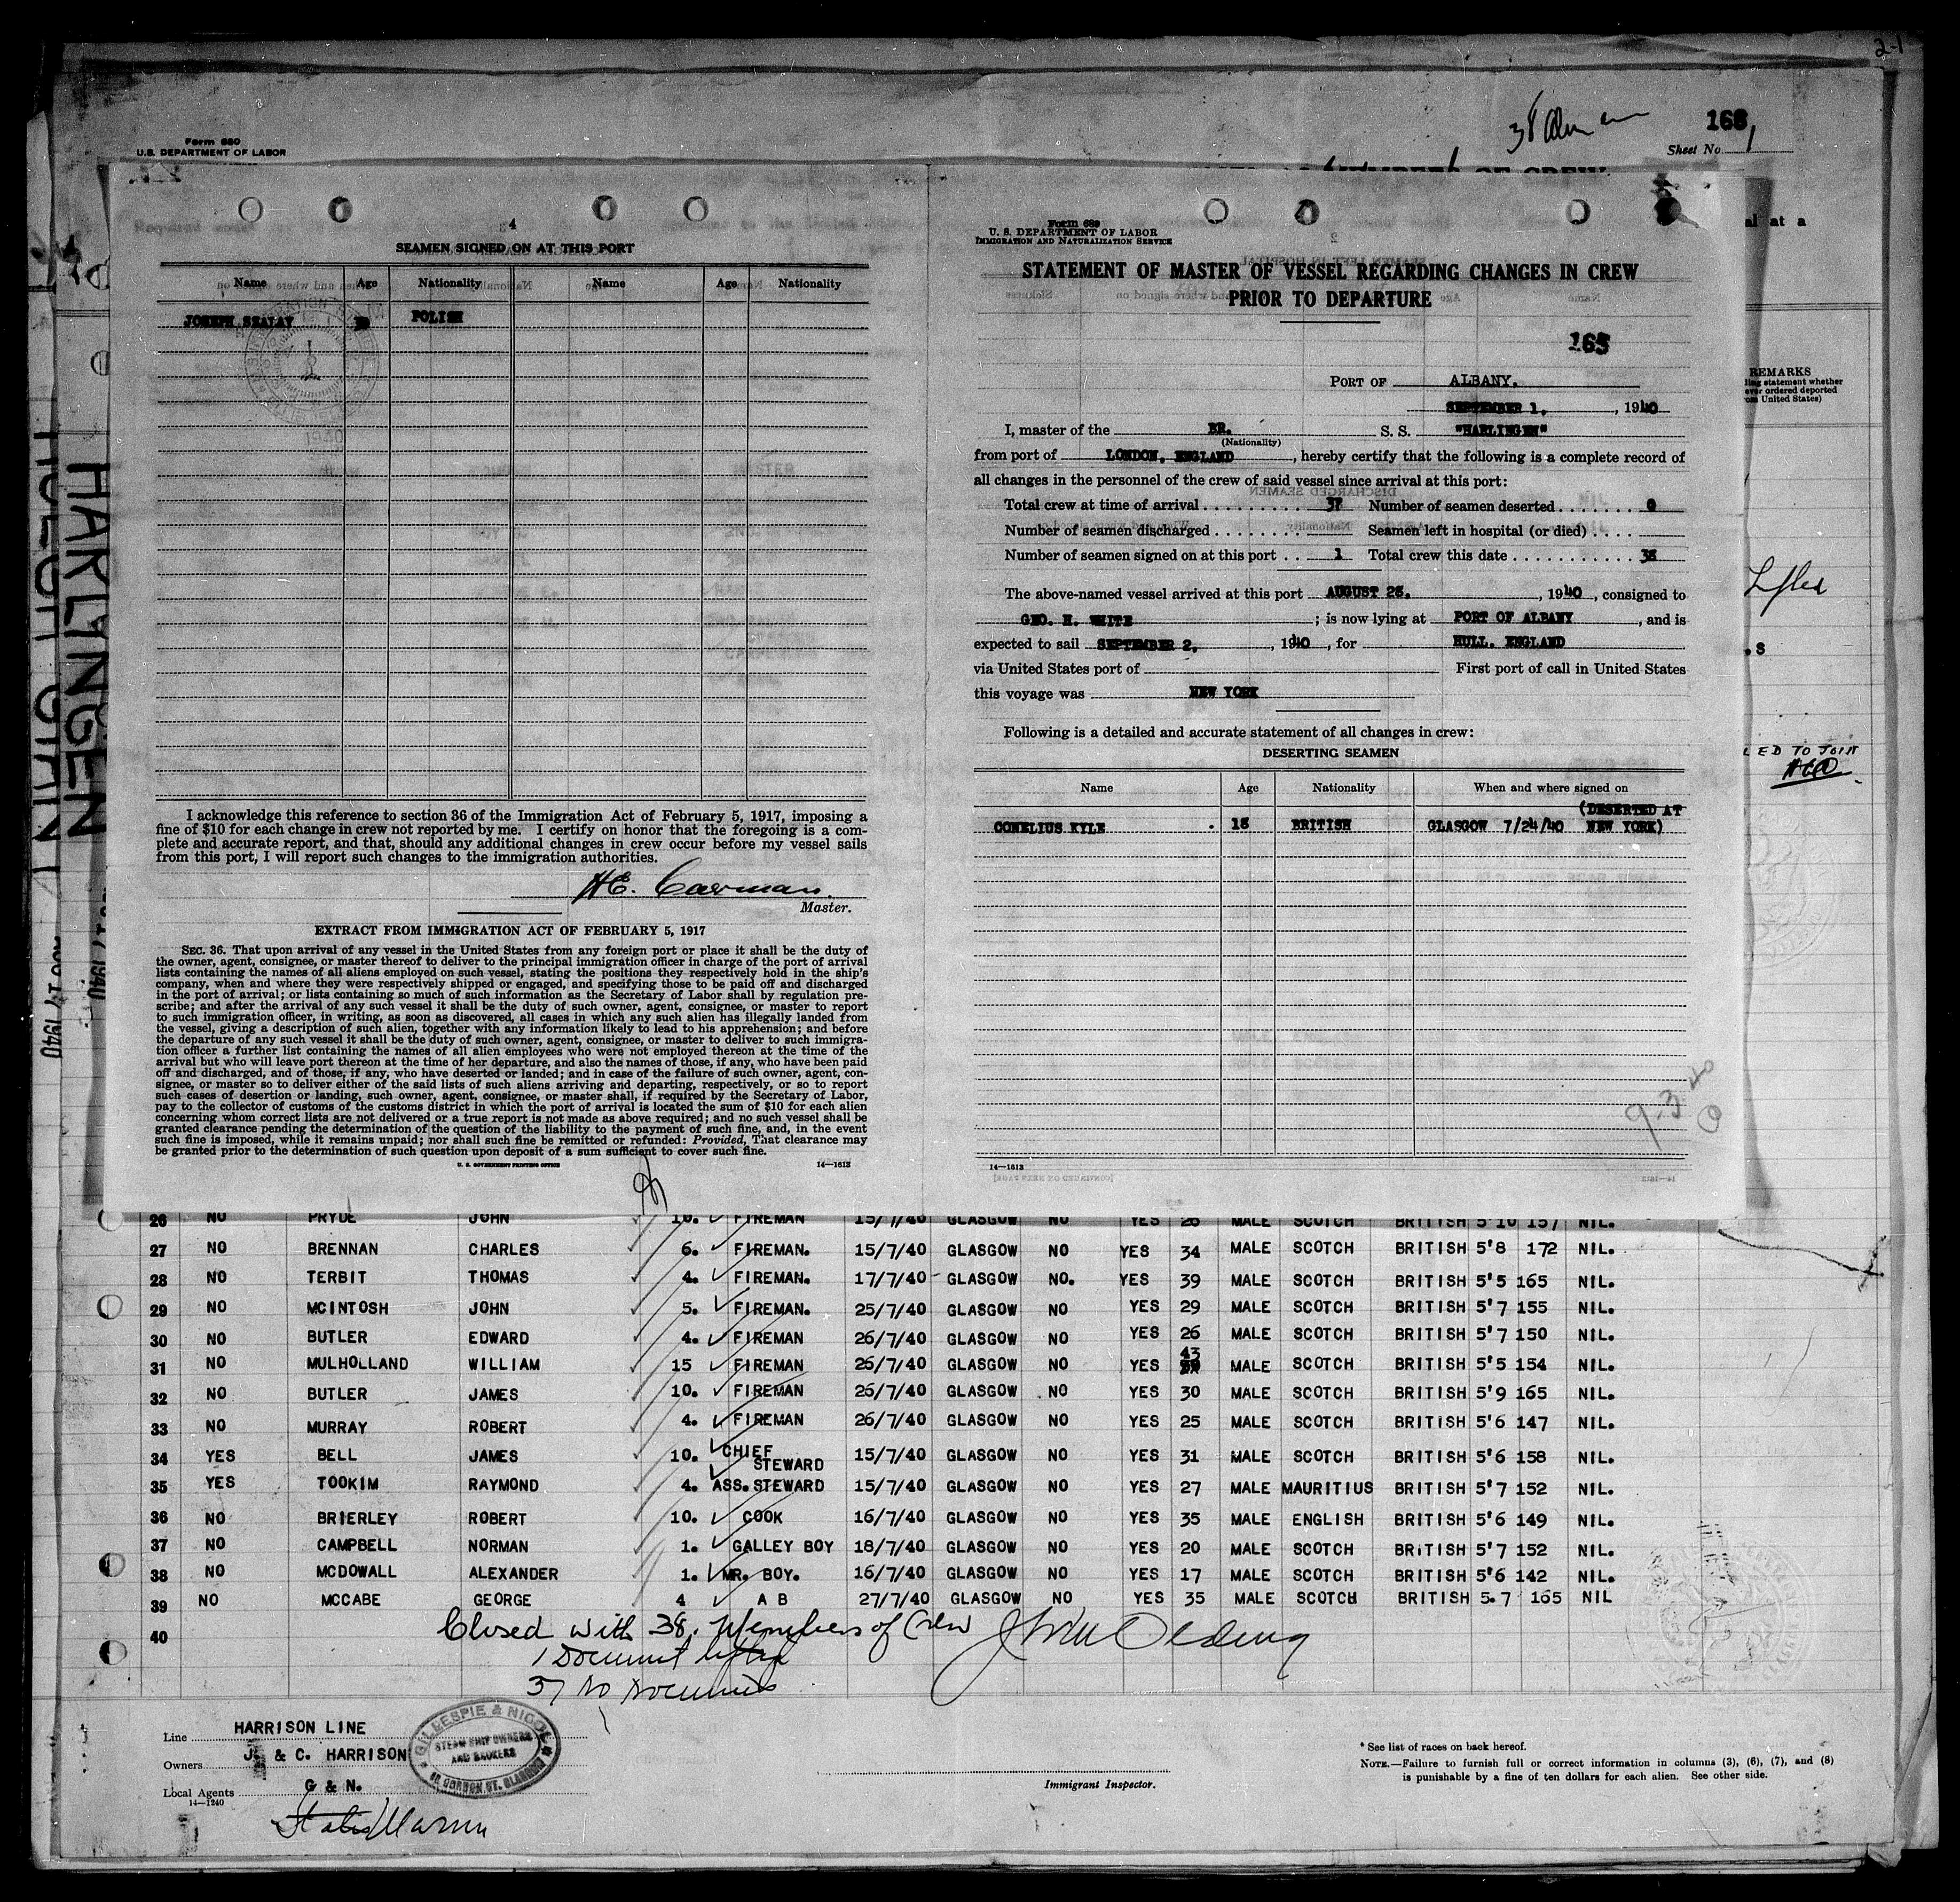 2-1
Form 680
U.S. DEPARTMENT OF LABOR
168
Sheet No. 1
al at a
REMARKS
ever ordered deported
United States)
LED TO JOIN
HARLINGEN
4
SEAMEN SIGNED ON AT THIS PORT
Name Age Nationality Name Age Nationality
JOSEPH SZALAY POLISH
1940
I acknowledge this reference to section 36 of the Immigration Act of February 5, 1917, imposing a
fine of $10 for each change in crew not reported by me. I certify on honor that the foregoing is a com-
plete and accurate report, and that, should any additional changes in crew occur before my vessel sails
from this port, I will report such changes to the immigration authorities.
HE. Carman.
Master.
EXTRACT FROM IMMIGRATION ACT OF FEBRUARY 5, 1917
SEC. 36. That upon arrival of any vessel in the United States from any foreign port or place it shall be the duty of
the owner, agent, consignee, or master thereof to deliver to the principal immigration officer in charge of the port of arrival
lists containing the names of all aliens employed on such vessel, stating the positions they respectively hold in the ship's
company, when and where they were respectively shipped or engaged, and specifying those to be paid off and discharged
in the port of arrival; or lists containing so much of such information as the Secretary of Labor shall by regulation pre-
scribe; and after the arrival of any such vessel it shall be the duty of such owner, agent, consignee, or master to report
to such immigration officer, in writing, as soon as discovered, all cases in which any such alien has illegally landed from
the vessel, giving a description of such alien, together with any information likely to lead to his apprehension; and before
the departure of any such vessel it shall be the duty of such owner, agent, consignee, or master to deliver to such immigra-
tion officer a further list containing the names of all alien employees who were not employed thereon at the time of the
arrival but who will leave port thereon at the time of her departure, and also the names of those, if any, who have been paid
off and discharged, and of those, if any, who have deserted or landed; and in case of the failure of such owner, agent, con-
signee, or master so to deliver either of the said lists of such aliens arriving and departing, respectively, or so to report
such cases of desertion or landing, such owner, agent, consignee, or master shall, if required by the Secretary of Labor,
pay to the collector of customs of the customs district in which the port of arrival is located the sum of $10 for each alien
concerning whom correct lists are not delivered or a true report is not made as above required; and no such vessel shall be
granted clearance pending the determination of the question of the liability to the payment of such fine, and, in the event
such fine is imposed, while it remains unpaid; nor shall such fine be remitted or refunded: Provided, That clearance may
be granted prior to the determination of such question upon deposit of a sum sufficient to cover such fine.
U. S. GOVERNMENT PRINTING OFFICE 14—1613
Form 689
U. S. DEPARTMENT OF LABOR
IMMIGRATION AND NATURALIZATION SERVICE
STATEMENT OF MASTER OF VESSEL REGARDING CHANGES IN CREW
PRIOR TO DEPARTURE
165
PORT OF ALBANY.
SEPTEMBER 1, 1940
I, master of the BR. S. S. "HARLINGEN"
(Nationality)
from port of LONDON, ENGLAND, hereby certify that the following is a complete record of
all changes in the personnel of the crew of said vessel since arrival at this port:
Total crew at time of arrival 37 Number of seamen deserted 0
Number of seamen discharged Seamen left in hospital (or died)
Number of seamen signed on at this port 1 Total crew this date 38
The above-named vessel arrived at this port AUGUST 26, 1940, consigned to
GEO. H. WHITE; is now lying at PORT OF ALBANY, and is
expected to sail SEPTEMBER 2, 1940, for HULL, ENGLAND
via United States port of First port of call in United States
this voyage was NEW YORK
Following is a detailed and accurate statement of all changes in crew:
DESERTING SEAMEN
Name Age Nationality When and where signed on
(DESERTED AT
CONELIUS KYLE 18 BRITISH GLASGOW 7/24/40 NEW YORK)
9.3.40
14—1613
26 NO PRYDE JOHN 10. FIREMAN 15/7/40 GLASGOW NO YES 26 MALE SCOTCH BRITISH 5'10 157 NIL.
27 NO BRENNAN CHARLES 6. FIREMAN. 15/7/40 GLASGOW NO YES 34 MALE SCOTCH BRITISH 5'8 172 NIL.
28 NO TERBIT THOMAS 4. FIREMAN. 17/7/40 GLASGOW NO. YES 39 MALE SCOTCH BRITISH 5'5 165 NIL.
29 NO MCINTOSH JOHN 5. FIREMAN. 25/7/40 GLASGOW NO YES 29 MALE SCOTCH BRITISH 5'7 155 NIL.
30 NO BUTLER EDWARD 4. FIREMAN 26/7/40 GLASGOW NO YES 26 MALE SCOTCH BRITISH 5'7 150 NIL.
31 NO MULHOLLAND WILLIAM 15 FIREMAN 26/7/40 GLASGOW NO YES 43 MALE SCOTCH BRITISH 5'5 154 NIL.
32 NO BUTLER JAMES 10. FIREMAN 26/7/40 GLASGOW NO YES 30 MALE SCOTCH BRITISH 5'9 165 NIL.
33 NO MURRAY ROBERT 4. FIREMAN 26/7/40 GLASGOW NO YES 25 MALE SCOTCH BRITISH 5'6 147 NIL.
34 YES BELL JAMES 10. CHIEF STEWARD 15/7/40 GLASGOW NO YES 31 MALE SCOTCH BRITISH 5'6 158 NIL.
35 YES TOOKIM RAYMOND 4. ASS. STEWARD 15/7/40 GLASGOW NO YES 27 MALE MAURITIUS BRITISH 5'7 152 NIL.
36 NO BRIERLEY ROBERT 10. COOK 16/7/40 GLASGOW NO YES 35 MALE ENGLISH BRITISH 5'6 149 NIL.
37 NO CAMPBELL NORMAN 1. GALLEY BOY 18/7/40 GLASGOW NO YES 20 MALE SCOTCH BRITISH 5'7 152 NIL.
38 NO MCDOWALL ALEXANDER 1. MR. BOY. 16/7/40 GLASGOW NO YES 17 MALE SCOTCH BRITISH 5'6 142 NIL.
39 NO MCCABE GEORGE 4 A B 27/7/40 GLASGOW NO YES 35 MALE SCOTCH BRITISH 5.7 165 NIL
40 Closed with 38. Members of Crew
1 Document lifted
37 No Documents
Line HARRISON LINE
Owners J. & C. HARRISON
Local Agents G & N.
14—1240
GILLESPIE & NICOL
STEAM SHIP OWNERS
AND BROKERS
GORDON ST. GLASGOW
Immigrant Inspector.
* See list of races on back hereof.
NOTE.—Failure to furnish full or correct information in columns (3), (6), (7), and (8)
is punishable by a fine of ten dollars for each alien. See other side.